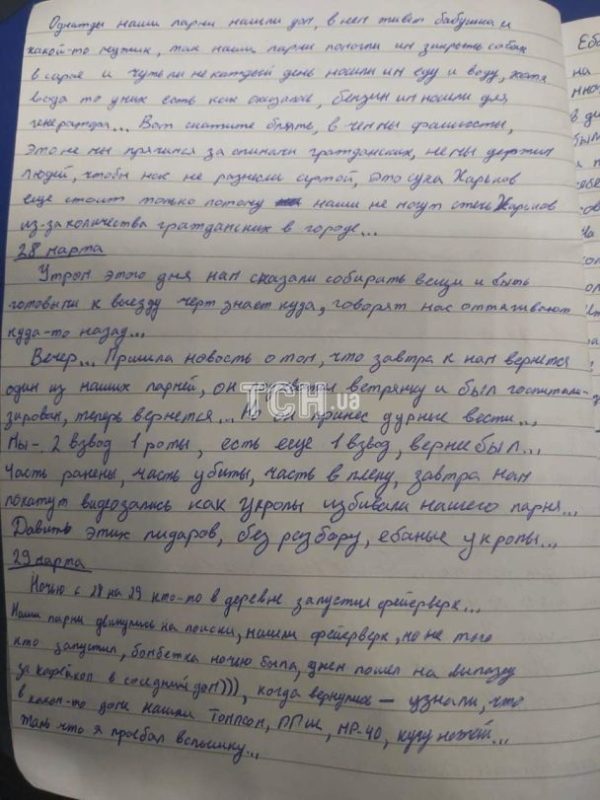 Однажды наши парни нашли дом, в нем живет бабушка и
какой-то мужик, так наши парни помогли им закрыть собак
в сарае и чуть ли не каждый день носили им еду и воду, хотя
вода то у них есть как оказалось, бензин им носили для
генератора... Вот скажите блять, в чем мы фашисты,
это не мы прячимся за спинами гражданских, не мы держим
людей, чтобы нас не разнесли артой, это сука Харьков
еще стоит только потому наши не могут стечь Харьков
из-за количества гражданских в городе...
28 марта
Утром этого дня нам сказали собирать вещи и быть
готовыми к выезду черт знает куда, говорят нас оттягивают
куда-то назад...
Вечер... Пришла новость о том, что завтра к нам вернется
один из наших парней, он ветрянку и был госпитали-
зирован, теперь вернется... Но он принес дурные вести...
Мы - 2 взвод 1 роты, есть еще 1 взвод, вернее был...
Часть ранены, часть убиты, часть в плену, завтра нам
покажут видеозапись как укропы избивали нашего парня...
Давить этих пидаров, без разбору, ебаные укропы...
29 марта
Ночью с 28 на 29 кто-то в деревне запустил фейерверк...
Наши парни двинулись на поиски, нашли фейерверк, но не того
кто запустил, бомбежка ночью была, днем пошел на вылазку
за в соседний дом))), когда вернулись - узнали, что
в каком-то доме нашли Томпсон, ППШ, МР-40, кучу ножей...
так что я проебал вспышку...
ТСН.ua
Еба
на
мно